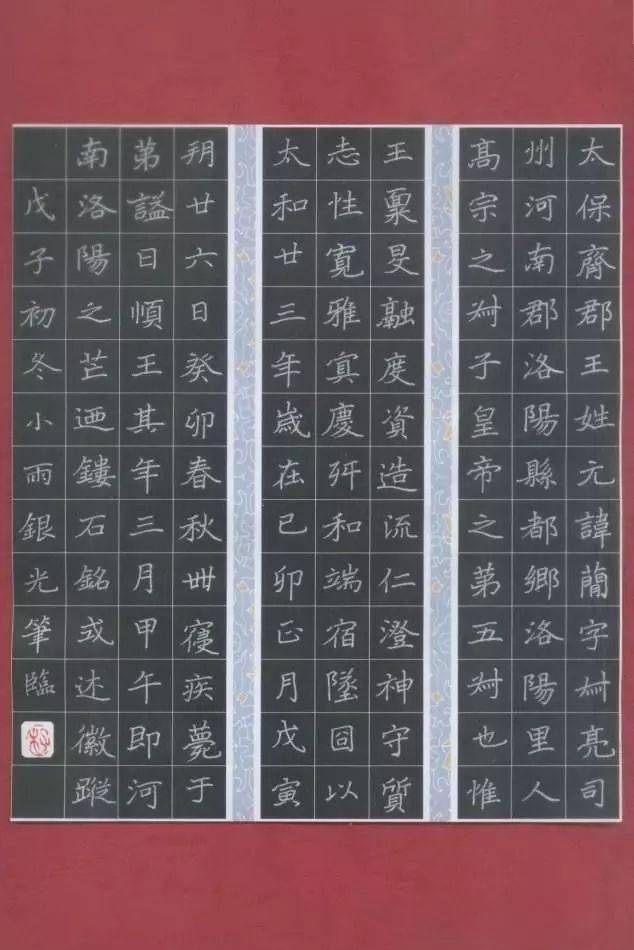 太保齊郡王姓元諱蕑字叔亮司
州河南郡洛陽縣都鄉洛陽里人
髙宗之叔子皇帝之苐五叔也惟
王稟旻融度資造流仁澄神守質
志性寛雅寘慶歼和端宿墜囧以
太和廿三年歲在己卯正月戊寅
朔廿六日癸卯春秋卌寑疾薨于
苐謚曰順王其年三月甲午即河
南洛陽之芒迺鏤石銘式述徽蹤
戊子初冬小雨銀光筆臨